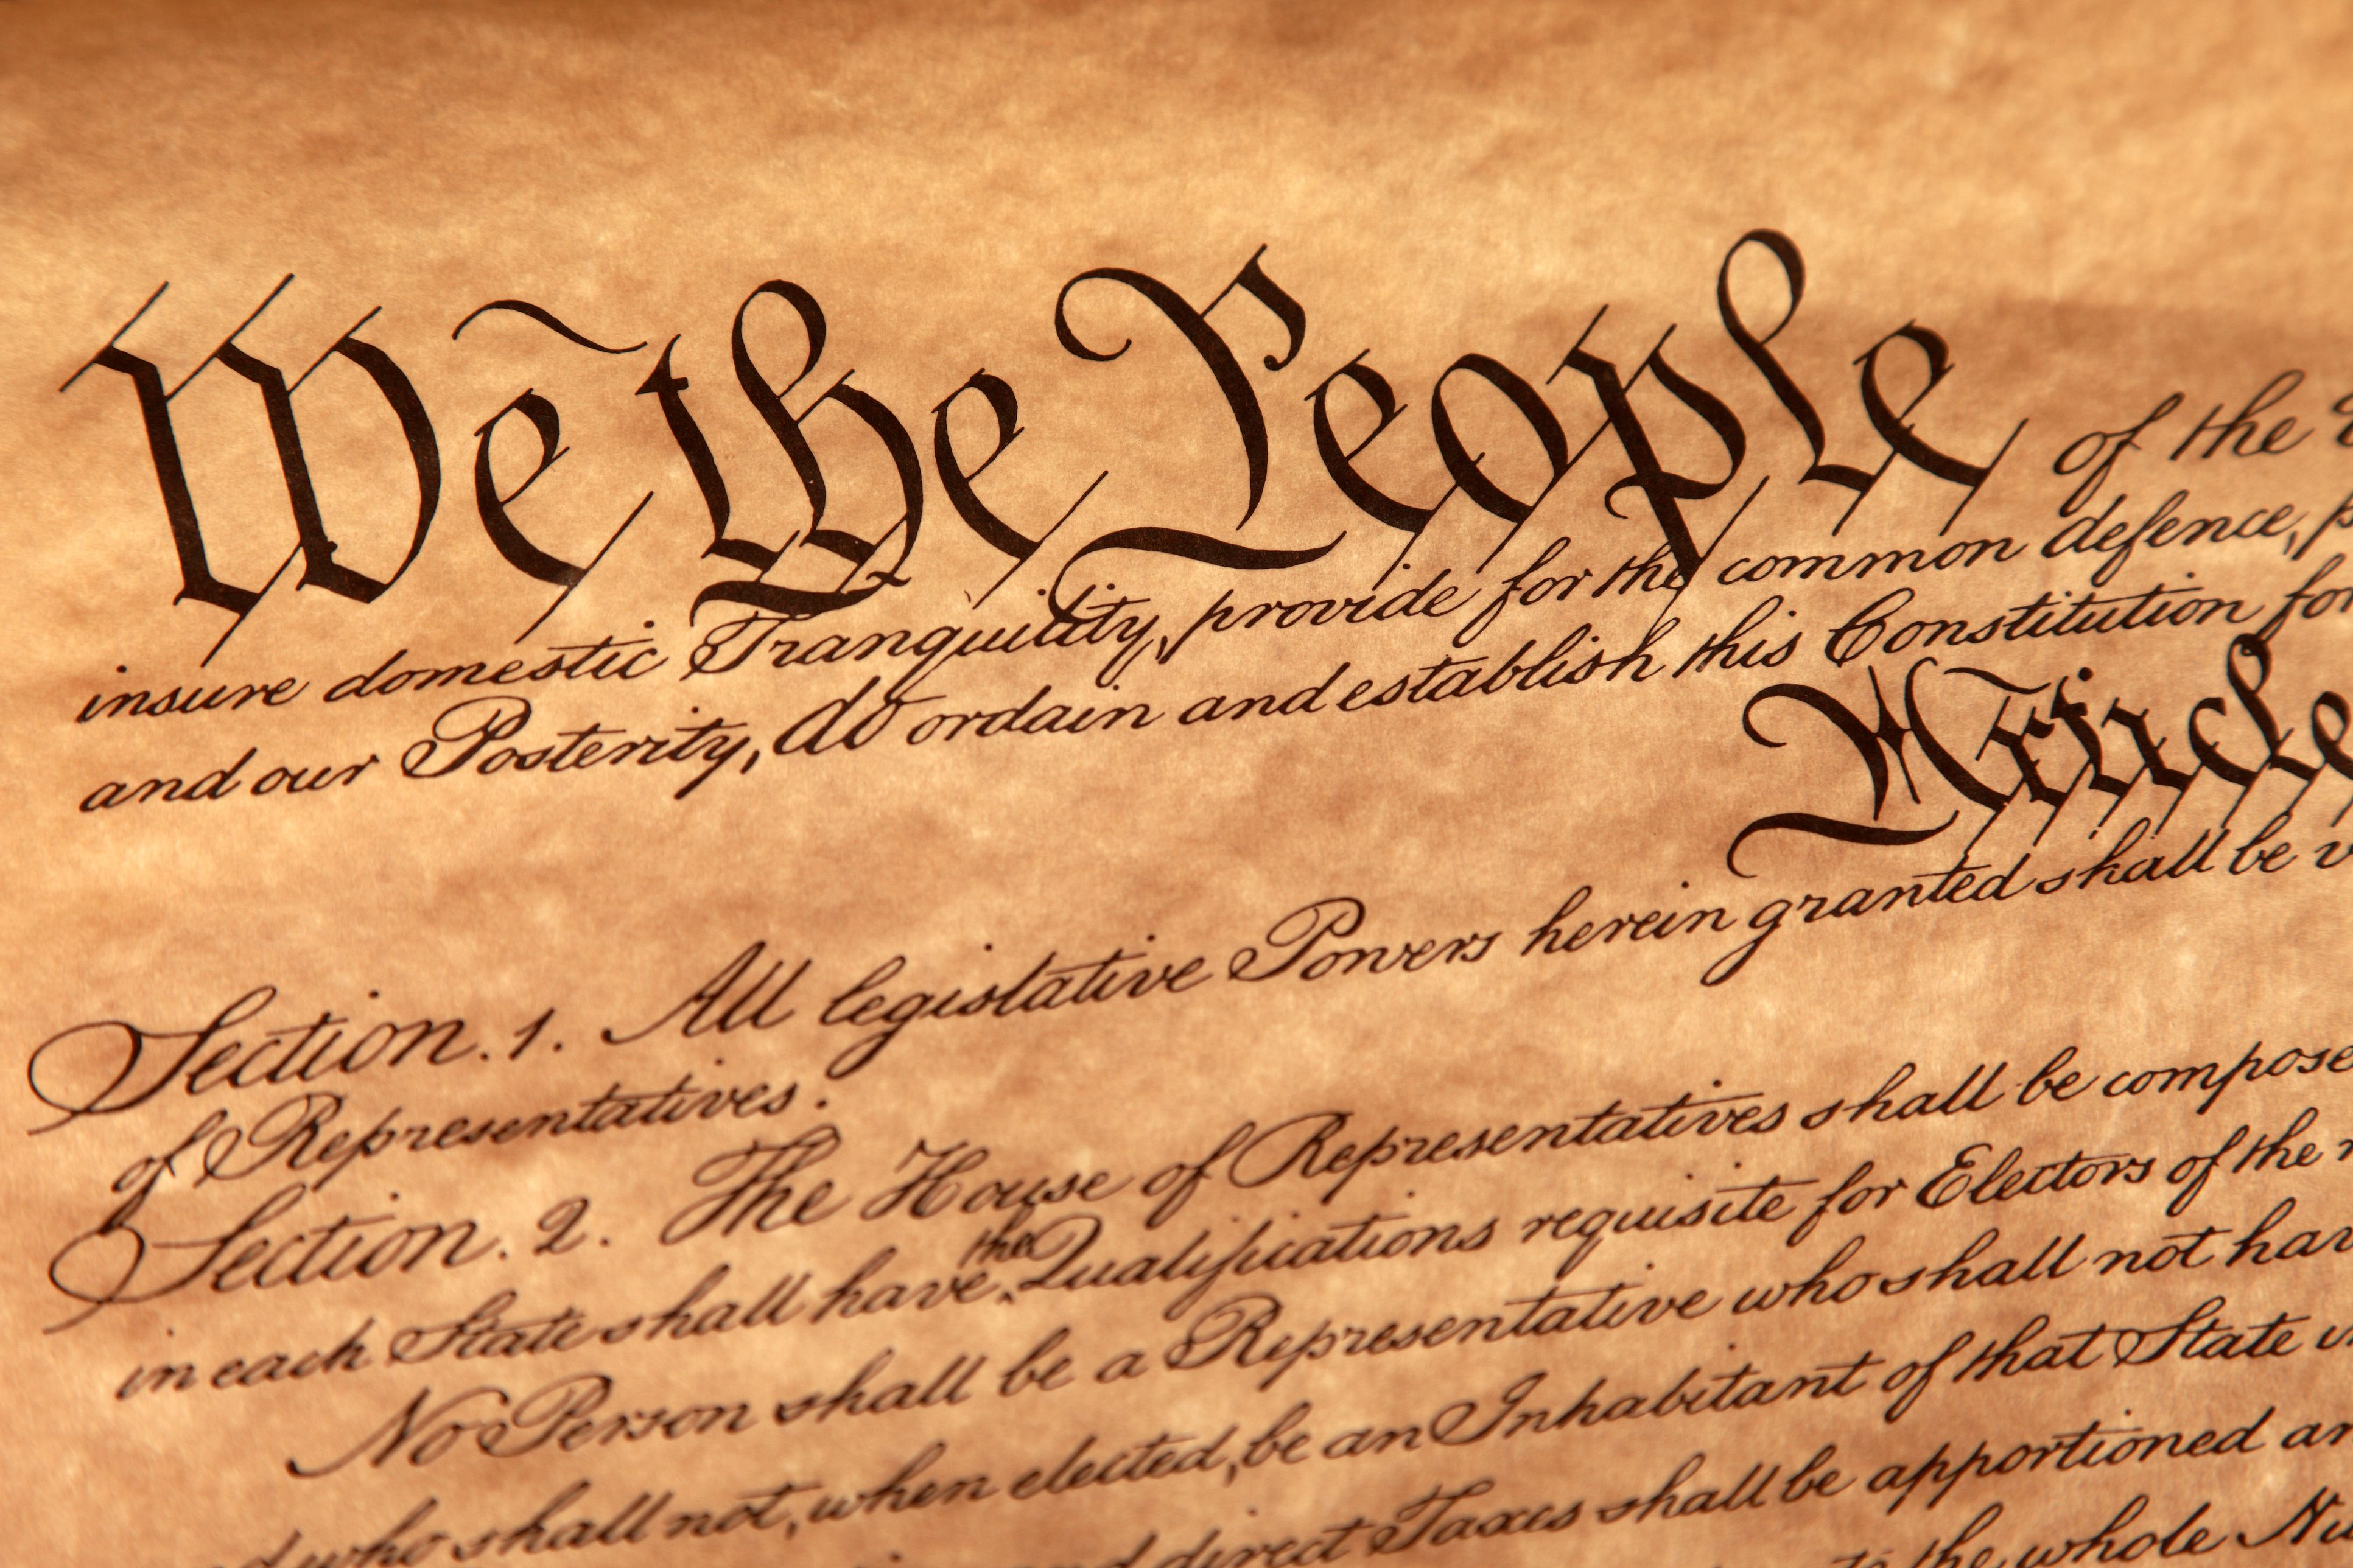 We the People of the
insure domestic Tranquility, provide for the common defence,
and our Posterity, do ordain and establish this Constitution for
Article
Section. 1. All legislative Powers herein granted shall be
of Representatives.
Section. 2. The House of Representatives shall be compose
the
in each State shall have Qualifications requisite for Electors of the
No Person shall be a Representative who shall not hav
who shall not, when elected, be an Inhabitant of that State
direct Taxes shall be apportioned
the whole Nu